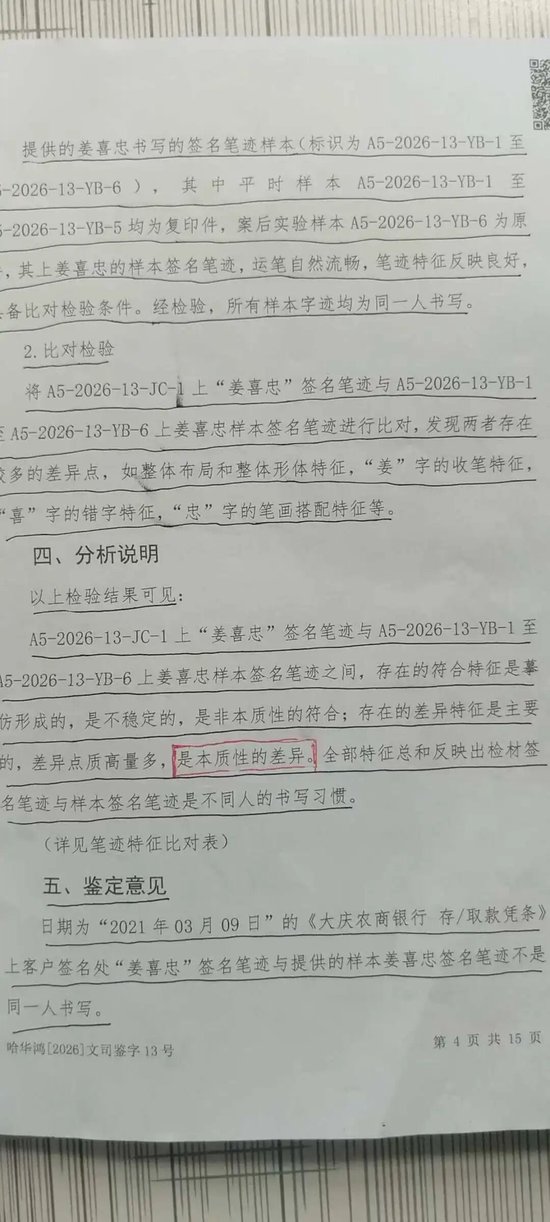 提供的姜喜忠书写的签名笔迹样本(标识为 A5-2026-13-YB-1 至
5-2026-13-YB-6），其中平时样本 A5-2026-13-YB-1 至
5-2026-13-YB-5 均为复印件，案后实验样本 A5-2026-13-YB-6 为原
，其上姜喜忠的样本签名笔迹，运笔自然流畅，笔迹特征反映良好，
备比对检验条件。经检验，所有样本字迹均为同一人书写。
2.比对检验
将 A5-2026-13-JC-1 上“姜喜忠”签名笔迹与 A5-2026-13-YB-1
至 A5-2026-13-YB-6 上姜喜忠样本签名笔迹进行比对，发现两者存在
较多的差异点，如整体布局和整体形体特征，“姜”字的收笔特征，
“喜”字的错字特征，“忠”字的笔画搭配特征等。
四、分析说明
以上检验结果可见：
A5-2026-13-JC-1 上“姜喜忠”签名笔迹与 A5-2026-13-YB-1 至
A5-2026-13-YB-6 上姜喜忠样本签名笔迹之间，存在的符合特征是摹
仿形成的，是不稳定的，是非本质性的符合；存在的差异特征是主要
的，差异点质高量多，是本质性的差异。全部特征总和反映出检材签
名笔迹与样本签名笔迹是不同人的书写习惯。
（详见笔迹特征比对表）
五、鉴定意见
日期为“2021 年 03 月 09 日”的《大庆农商银行 存/取款凭条》
上客户签名处“姜喜忠”签名笔迹与提供的样本姜喜忠签名笔迹不是
同一人书写。
哈华鸿[2026]文司鉴字 13 号
第 4 页 共 15 页